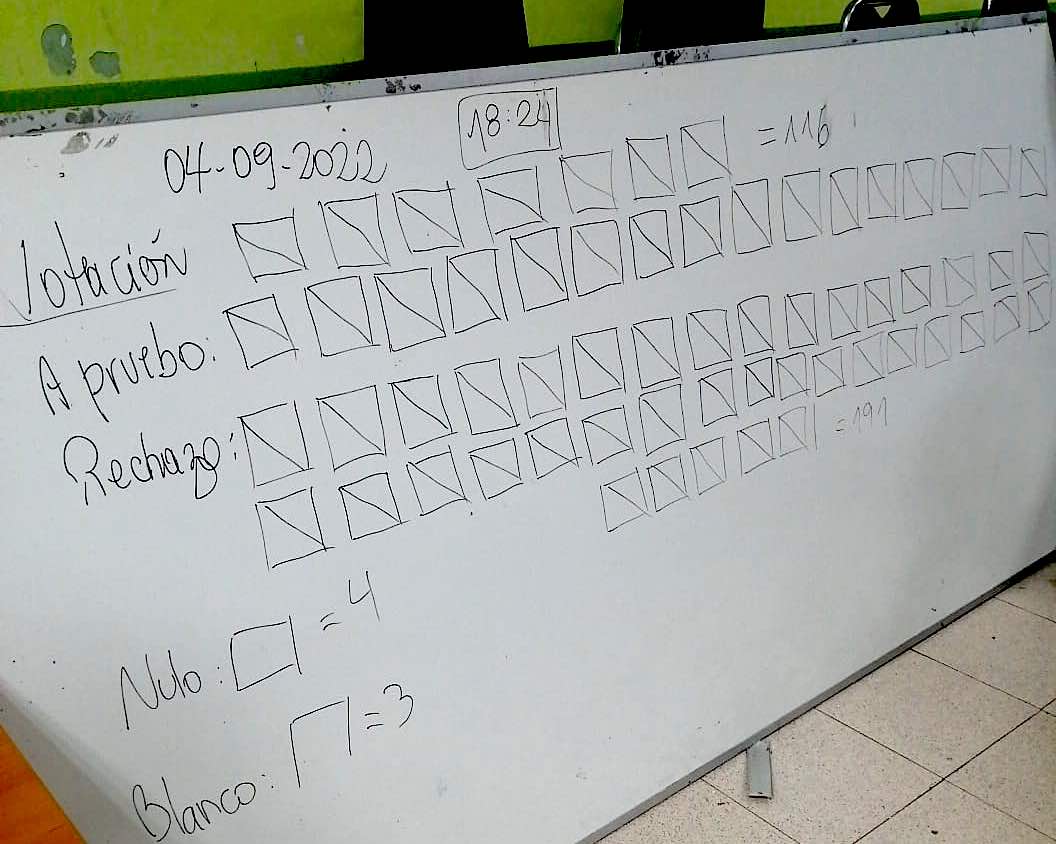 04-09-2022 18:24
Votación
= 116
Apruebo:
Rechazo:
= 191
Nulo: = 4
Blanco: = 3